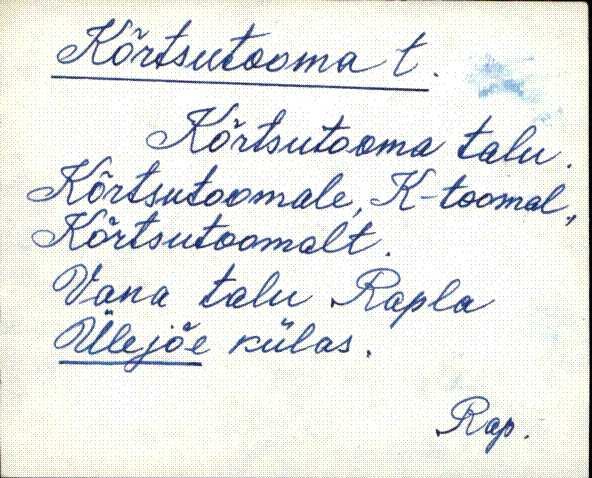 Kõrtsutooma t.
Kõrtsutooma talu.
Kõrtsutoomale, K-toomal,
Kõrtsutoomalt.
Vana talu Rapla
Ülejõe külas.
Rap.